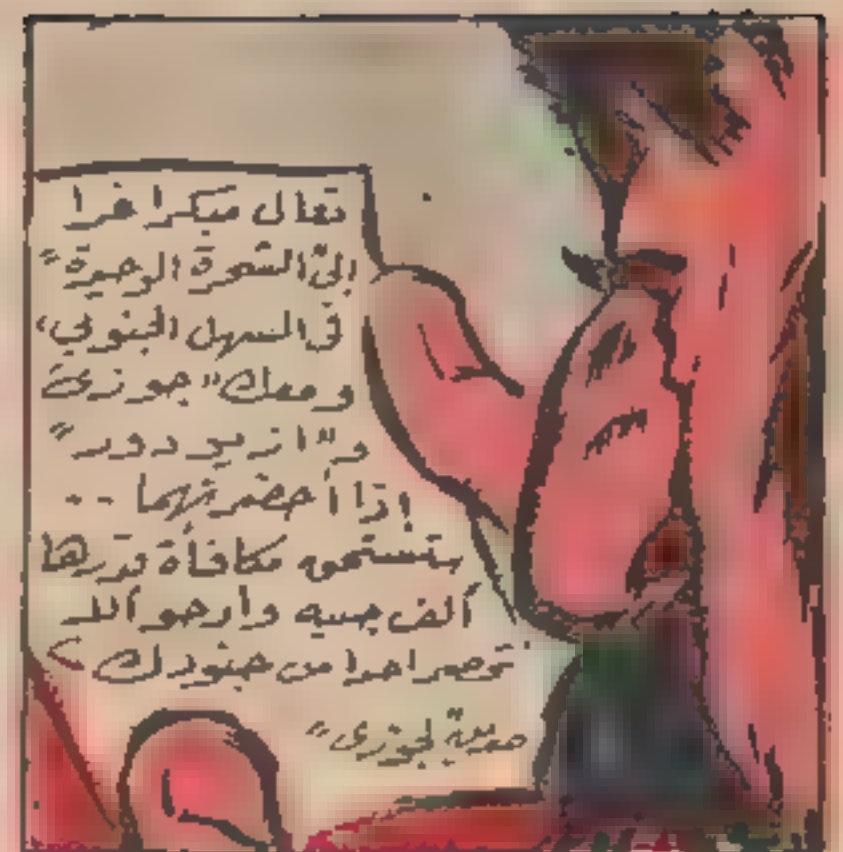 تعال مبكرا غدا
إلى الشجرة الوحيدة"
فى السهل الجنوبي،
ومعك "جوزى"
و"ازميرودور"
إذا أحضرتهما ..
ستستحق مكافأة قدرها
ألف جنيه وأرجو ألا
تحضر احدا من جنودك
صديق لجوزى"